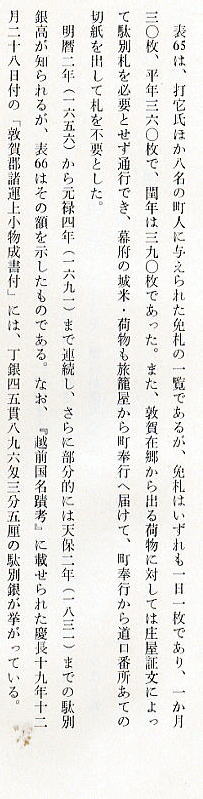 表65は、打它氏ほか八名の町人に与えられた免札の一覧であるが、免札はいずれも一日一枚であり、一か月
三〇枚、平年三六〇枚で、閏年は三九〇枚であった。また、敦賀在郷から出る荷物に対しては庄屋証文によっ
て駄別札を必要とせず通行でき、幕府の城米・荷物も旅籠屋から町奉行へ届けて、町奉行から道口番所あての
切紙を出して札を不要とした。
明暦二年（一六五六）から元禄四年（一六九一）まで連続し、さらに部分的には天保二年（一八三一）までの駄別
銀高が知られるが、表66はその額を示したものである。なお、『越前国名蹟考』に載せられた慶長十九年十二
月二十八日付の「敦賀郡諸運上小物成書付」には、丁銀四五貫八九六匁三分五厘の駄別銀が挙がっている。